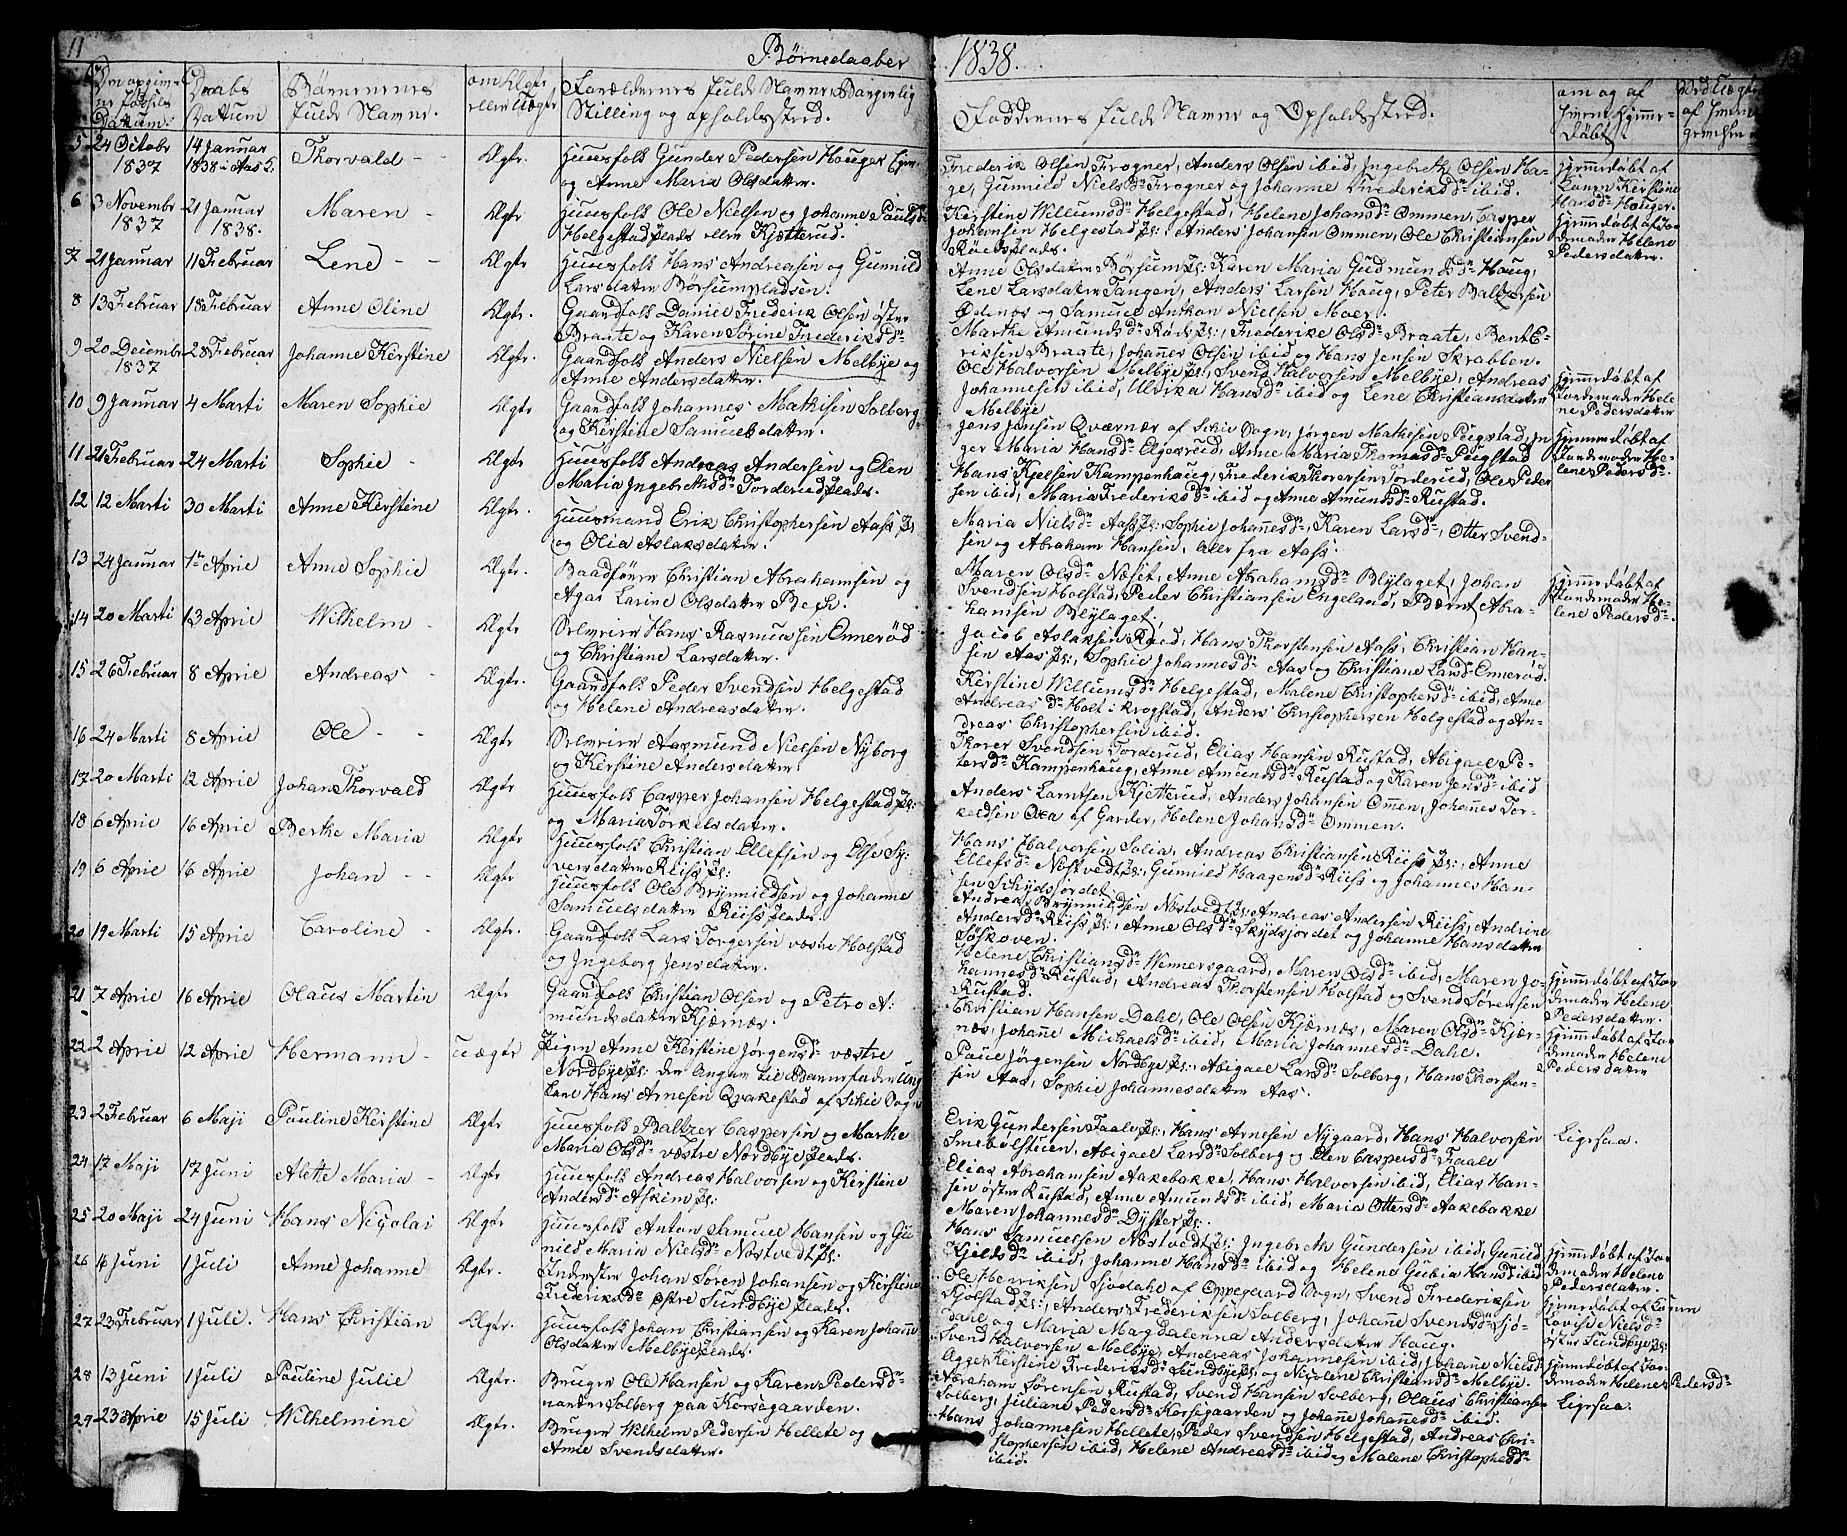 11
Børnedaaber
1838.
Den opgivne Fødsels Datum.
Daabs Datum
Børnenenes fulde Navne.
om Ægte eller Uægte
Forældrenes fulde Navne, Borgerlig Stilling og opholdssted.
Faddernes fulde Navne og Opholdssted.
om og af hvem hjemmedøbt
5 24 Octobr 1837 14 Januar 1838 i Aas K. Thorvald Ægte.
Huusfolk Gunder Pedersen Houger Eyer
og Anne Maria Olsdatter.
Frederik Olsen Frogner, Anders Olsen ibid, Ingebreth Olsen Ha-
ge, Gunnild Nielsdr Frogner og Johanne Frederiksdr ibid.
Hjemmedøbt af
Karen Kirstine
Hansdr Houger.
6 3 Novembr 1837 21 Januar 1838. Maren Ægte
Huusfolk Ole Nielsen og Johanne Paulsdr
Helgestad Plads eller Kjetterud.
Kerstine Willumsdr Helgestad, Helene Johansdr Ommen, Casper
Johansen Helgestad Pl: Anders Johansen Ommen, Ole Christiansen
Røeds Plads.
Hjemmedøbt af Jor-
demoder Helene
Pedersdatter.
7 21 Januar 11 Februar Lene Ægte
Huusfolk Hans Andreasen og Gunnild
Larsdatter Børsumpladsen.
Anne Olsdatter Børsum Pl: Karen Maria Gudmundsdr Houg,
Lene Larsdatter Tangen, Anders Larsen Houg, Peter Baltzersen
Ødenæs og Samuel Anthon Nielsen Moer.
8 13 Februar 18 Februar Anne Oline Ægte
Gaardfolk Daniel Frederik Olsen øster
Braate og Karen Sørine Frederiksdr
Marthe Amundsdr Røds Pl:, Frederike Olsdr Braate, Bent E-
riksen Braate, Johannes Olsen ibid og Hans Jensen Skrabben.
9 20 Decembr 1837 28 Februar Johanne Kerstine Ægte.
Gaardfolk Anders Nielsen Melbye og
Anne Andersdatter.
Ole Halvorsen Melbye Pl:, Svend Halvorsen Melbye, Andreas
Johannesen ibid, Ulrika Hansdr ibid og Lene Christiansdatter
Melbye
Hjemmedøbt af
Jordemoder Hele-
ne Pedersdatter
10 9 Januar 4 Marti Maren Sophie Ægte
Gaardfolk Johannes Mathisen Solberg
og Kerstine Samuelsdatter.
Jens Jonsen Qværnær af Schie Sogn, Jørgen Mathisen Pugstad, In-
ger Maria Hansdr Elgesrud, Anne Maria Thomasdr Pugstad
Hjemmedøbt af
Jordemoder He-
lene Pedersdr.
11 21 Februar 24 Marti Sophie Ægte
Huusfolk Andreas Andersen og Elen
Maria Ingebrethsdr Torderud Plads.
Hans Kjelsen Kampenhaug, Frederik Thorersen Torderud, Ole Peder
sen ibid, Maria Frederiksdr ibid og Anne Amundsdr Rustad.
12 12 Marti 30 Marti Anne Kerstine Ægte.
Huusmand Erik Christophersen Aass Pl
og Olia Aslaksdatter.
Maria Nielsdr Aass Pl: Sophie Johannesdr, Karen Larsdr, Otter Svend-
sen og Abraham Hansen, alle fra Aass.
13 24 Januar 1te April Anne Sophie Ægte.
Baadfører Christian Abrahamsen og
Agar Larine Olsdatter Bech.
Maren Olsdr Næset, Anne Abrahamsdr Blylaget, Johan
Svendsen Holstad, Peder Christiansen Engeland, Bernt Abra-
hamsen Blylaget,
Hjemmedøbt af
Jordemoder He-
lene Pedersdr.
14 20 Marti 13 April Wilhelm Ægte
Selveier Hans Rasmussen Ennerød
og Christiane Larsdatter.
Jacob Aslaksen Røed, Hans Thorstensen Aass, Christian Han-
sen Aas Pl:, Sophie Johannesdr Aas og Christiane Larsdr Ennerød.
15 26 Februar 8 April Andreas Ægte.
Gaardfolk Peder Svendsen Helgestad
og Helene Andreasdatter.
Kerstine Willumsdr Helgestad, Malene Christophersdr ibid, Anne
Andreasdr Holt i Krogstad, Anders Christophersen Helgestad og An-
dreas Christophersen ibid.
16 24 Marti 8 April Ole Ægte
Selveier Aasmund Nielsen Nyborg
og Kerstine Andersdatter.
Thorer Svendsen Torderud, Elias Hansen Rustad, Abigael Pe-
tersdr Kampenhaug, Anne Amundsdr Rustad og Karen Jensdr ibid
17 20 Marti 12 April Johan Thorvald Ægte
Huusfolk Casper Johansen Helgestad Pl:
og Maria Torkelsdatter.
Anders Larntsen Kjetterud, Anders Johansen Ommen, Johannes Tor-
keldsen Oxa af Garder, Helene Johansdr Ommen.
18 6 April 16 April Berthe Maria Ægte
Huusfolk Christian Ellefsen og Else Sy-
versdatter Riiss Pl:
Hans Halvorsen Solia, Andreas Christiansen Riiss Pl:, Anne
Ellefsdr Nøstvedt Pl:, Gunnild Haagensdr Riiss og Johannes Han-
sen Schydsjordet.
19 6 April 16 April Johan Ægte
Huusfolk Ole Brynnildsen og Johanne
Samuelsdatter Riiss Plads.
Andreas Brynnildsen Nøstvedt Pl: Andreas Andersen Riiss, Andrine
Andersdr Riiss Pl:, Anne Olsdr Skydsjordet og Johanne Hansdatter
Søskoven.
20 19 Marti 15 April Caroline Ægte.
Gaardfolk Lars Torgersen væstre Holstad
og Ingeborg Jensdatter.
Helene Christiansdr Wennersgaard, Maren Olsdr ibid, Maren Jo-
hannesdr Rustad, Andreas Thorstensen Holstad og Svend Sørensen
Rustad.
Hjemmedøbt af Jor-
demoder Helene
Pedersdatter.
21 7 April 16 April Olaus Martin Ægte
Gaardfolk Christian Olsen og Petro A-
mundsdatter Kjærnæs.
Christian Hansen Dahl, Ole Olsen Kjærnæs, Maren Olsdr Kjær-
næs, Johanne Michaelsdr ibid, Maria Johannesdr Dahl.
Hjemmedøbt af Jor-
demoder Helene
Pedersdatter
22 2 April 12 April Hermann Uægte
Pigen Anne Kerstine Jørgensdr væstre
Nordbye Pl: der angav til Barnefader Ung
karl Hans Arnesen Qvakestad af Schie Sogn
Paul Jørgensen Nordbye Pl:, Abigael Larsdr Solberg, Hans Thorsten-
sen Aas, Sophie Johannesdatter Aas.
23 2 Februar 6 Maji Pauline Kerstine Ægte
Huusfolk Baltzer Caspersen og Marthe
Maria Olsdr væstre Nordbye Plads.
Erik Gundersen Faale Pl:, Hans Arnesen Nygaard, Hans Halvorsen
Smebølstuen, Abigael Larsdr Solberg og Elen Caspersdr Faale
Ligesaa.
24 17 Maji 17 Juni Alette Maria Ægte
Huusfolk Andreas Halvorsen og Kerstine
Andersdr Askim Pl:
Elias Abrahamsen Aakebakke, Hans Halvorsen ibid, Elias Han-
sen øster Rustad, Anne Amundsdr ibid, Maria Ottersdr Aakebakke
25 20 Maji 24 Juni Hans Nicolai Ægte
Huusfolk Anton Samuel Hansen og Gu-
nild Maria Nielsdr Nøstvedt Pl:
Maren Johannesdr Dyster Pl:.
Hans Samuelsen Nøstvedt Pl:, Ingebreth Gundersen ibid, Gunild
Kjelsdr ibid, Johanne Hansdr ibid og Helene Gubia Hansdr ibid
Hjemmedøbt af Jor-
demoder Helene
Pedersdatter.
26 16 Juni 1 Juli Anne Johanne Ægte.
Inderster Johan Søren Johansen og Kerstine
Frederiksdr østre Sundbye Plads.
Ole Henriksen Sjødahl af Oppegaard Sogn, Svend Frederiksen
Kjølstad Pl:, Anders Frederiksen Solberg, Johanne Svendsdr Sjø-
dahl og Maria Magdalenna Andersdatter Haug.
Hjemmedøbt af Karen
Lovise Nielsdr
øster Sundbye Pl:
27 23 Februar 1 Juli. Hans Christian Ægte.
Huusfolk Johan Christiansen og Karen Johanne
Olsdatter Melbye Plads.
Svend Halvorsen Melbye, Andreas Johannesen ibid, Johanne Nielsdr
Agge, Kerstine Frederiksdr Sundbye Pl: og Nicolene Christiansdr Melbye.
Hjemmedøbt af Jor-
demoder Helene Pedersdr
28 13 Juni 1 Juli Pauline Julie Ægte.
Bruger Ole Hansen og Karen Pedersdr
nordre Solberg paa Korsegaarden.
Abraham Sørensen Rustad, Svend Hansen Solberg, Olaus Christiansen
Solberg, Juliane Pedersdr Korsegaarden og Johanne Johannesdr ibid.
Ligesaa.
29 23 April 15 Juli Wilhelmine Ægte.
Bruger Wilhelm Pedersen Hellete og
Anne Svendsdatter.
Hans Johannesen Hellete, Peder Svendsen Helgestad, Andreas Chri-
stophersen ibid, Helene Andreasdr ibid og Malene Christophersdr
ibid.